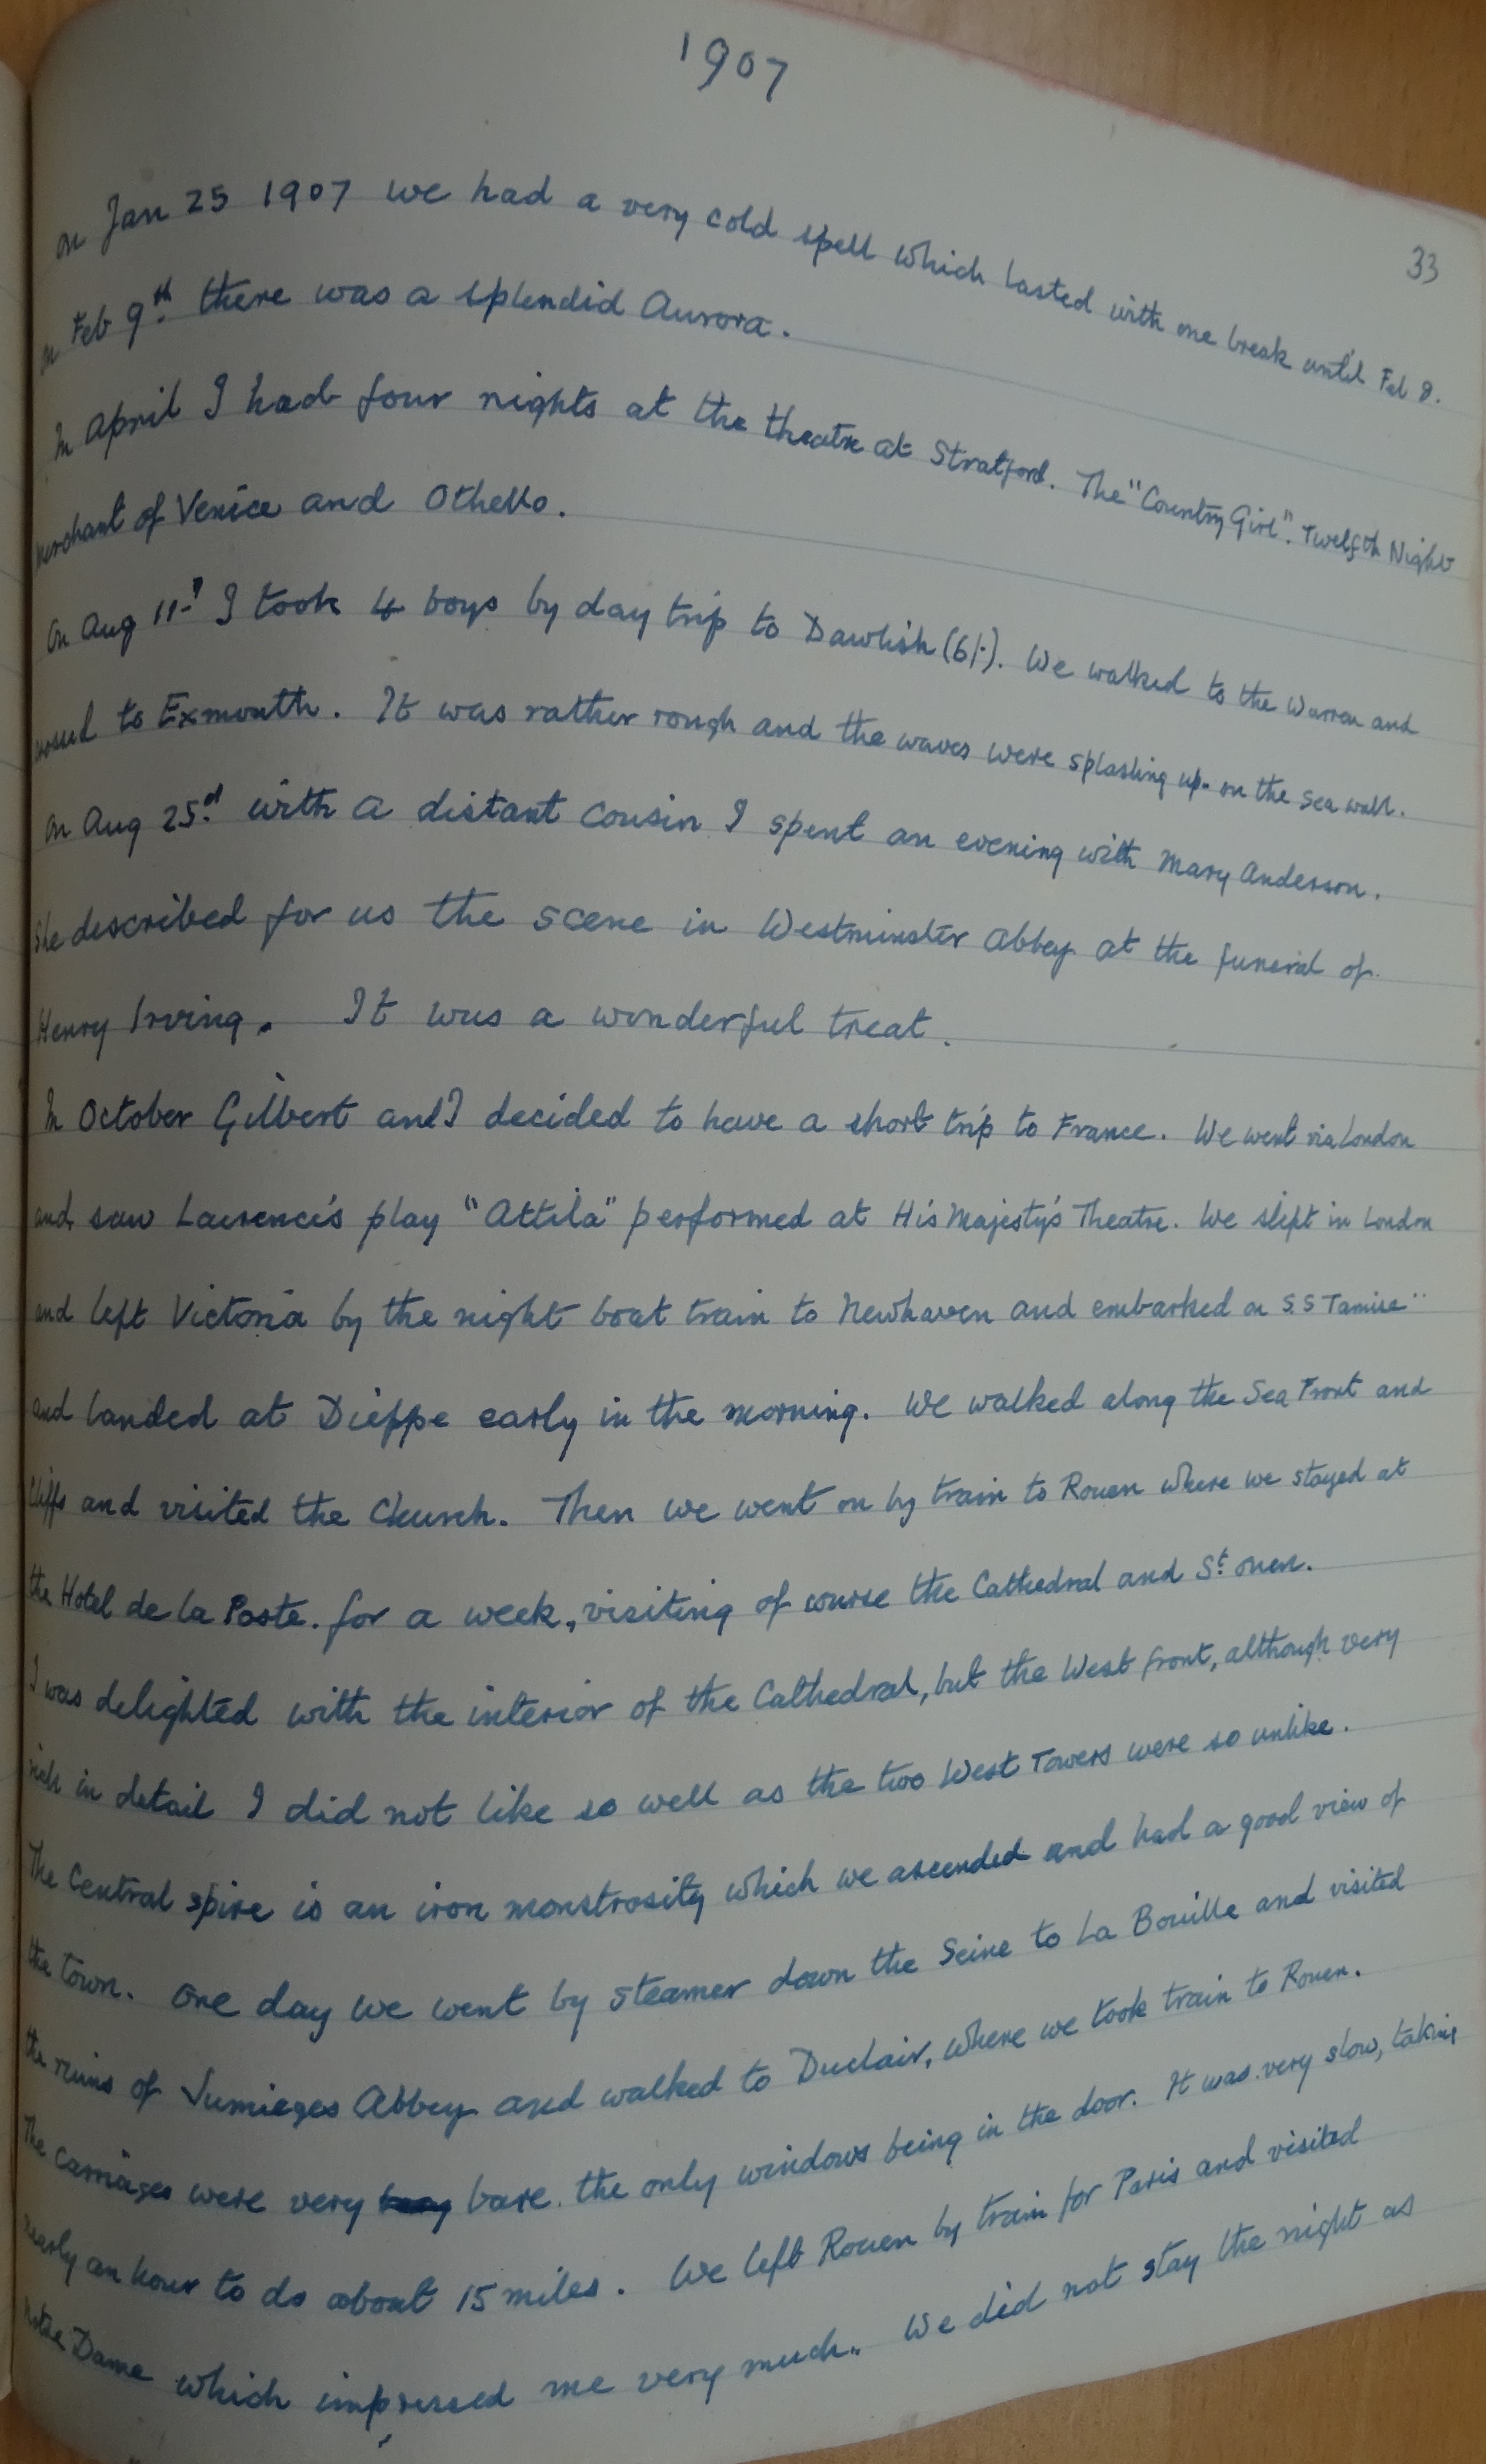 1907
33
On Jan 25 1907 we had a very cold spell which lasted with one break until Feb 8.
On Feb 9th. there was a splendid Aurora.
In April I had four nights at the theatre at Stratford. The "Country Girl". Twelfth Night
Merchant of Venice and Othello.
On Aug 11th I took 4 boys by day trip to Dawlish (6/-). We walked to the Warren and
crossed to Exmouth. It was rather rough and the waves were splashing up on the sea wall.
On Aug 25d. with a distant cousin I spent an evening with Mary Anderson.
She described for us the scene in Westminster Abbey at the funeral of
Henry Irving. It was a wonderful treat.
In October Gilbert and I decided to have a short trip to France. We went via London
and saw Laurence's play "Attila" performed at His Majesty's Theatre. We slept in London
and left Victoria by the night boat train to Newhaven and embarked on S.S Tamise"
and landed at Dieppe early in the morning. We walked along the Sea Front and
Cliffs and visited the Church. Then we went on by train to Rouen where we stayed at
the Hotel de la Poste. for a week, visiting of course the Cathedral and St. Ouen.
I was delighted with the interior of the Cathedral, but the West front, although very
rich in detail I did not like so well as the two West Towers were so unlike.
The Central spire is an iron monstrosity which we ascended and had a good view of
the town. One day we went by steamer down the Seine to La Bouille and visited
the ruins of Jumieges Abbey and walked to Duclair, where we took train to Rouen.
The carriages were very bare. the only windows being in the door. It was very slow, taking
nearly an hour to do about 15 miles. We left Rouen by train for Paris and visited
Notre Dame which impressed me very much. We did not stay the night as